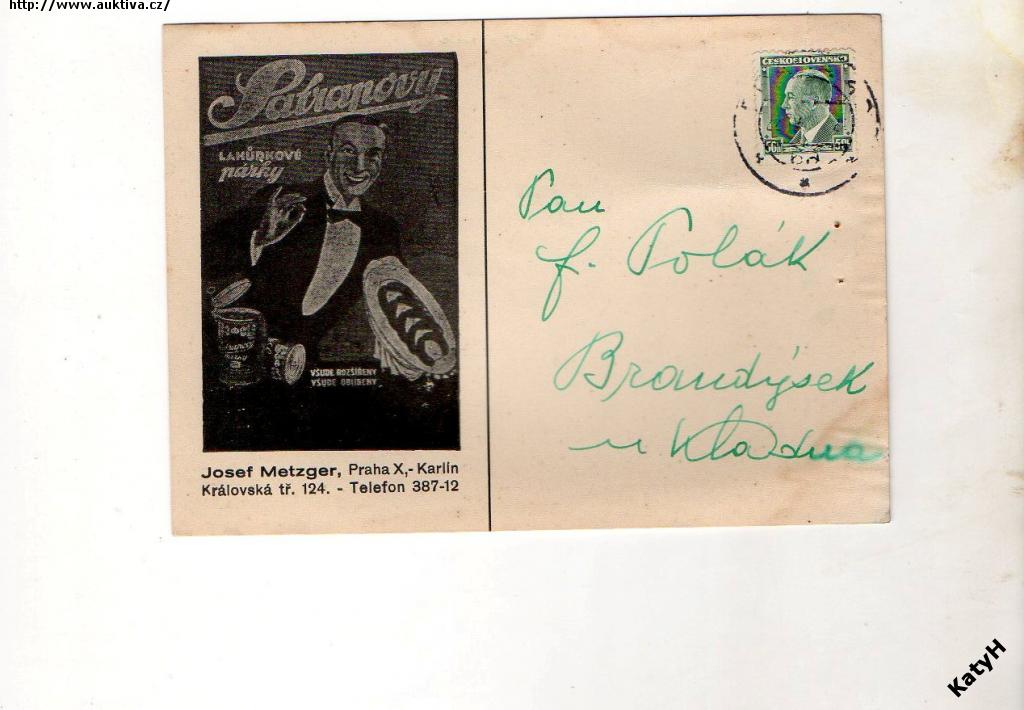 http://www.auktiva.cz/
Satrapovy
LAHŮDKOVÉ
párky
VŠUDE ROZŠÍŘENY
VŠUDE OBLÍBENY
Josef Metzger, Praha X,- Karlín
Královská tř. 124. - Telefon 387-12
ČESKOSLOVENSKO
50h
Pan
f. Polák
Brandýsek
u Kladna
KatyH